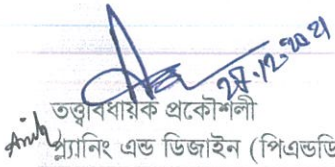 ২৭.১২.২০২১
তত্ত্বাবধায়ক প্রকৌশলী
প্ল্যানিং এন্ড ডিজাইন (পিএন্ডডি